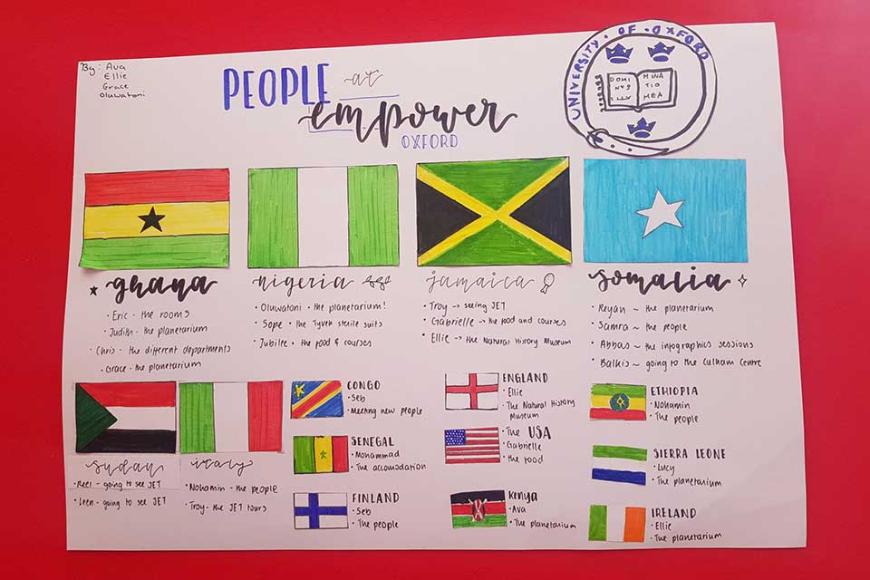 By: Ava
Ellie
Grace
Oluwatoni
PEOPLE at
empower
OXFORD
UNIVERSITY · OF · OXFORD
DOMI MINA
NVS TIO
ILLV MEA
ghana
· Eric - the rooms
· Judith - the planetarium
· Chris - the different departments
· Grace - the planetarium
nigeria
· Oluwatoni - the planetarium!
· Sope - the Tyvek sterile suits
· Jubilee - the food & courses
jamaica
· Troy → seeing JET
· Gabrielle → the food and courses
· Ellie → the Natural History Museum
somalia
· Reyan ~ the planetarium
· Samra ~ the people
· Abbas ~ the infographics sessions
· Balkis ~ going to the Culham Centre
sudan
· Reel - going to see JET
· Leen - going to see JET
italy
· Nohamin - the people
· Troy - the JET tours
CONGO
· Seb
· Meeting new people
SENEGAL
· Mohammad
· The accomodation
FINLAND
· Seb
· The people
ENGLAND
· Ellie
· The Natural History
Museum
· The USA
· Gabrielle
· the food
Kenya
· Ava
· The planetarium
ETHIOPIA
· Nohamin
· The people
SIERRA LEONE
· Lucy
· The planetarium
IRELAND
· Ellie
· The planetarium